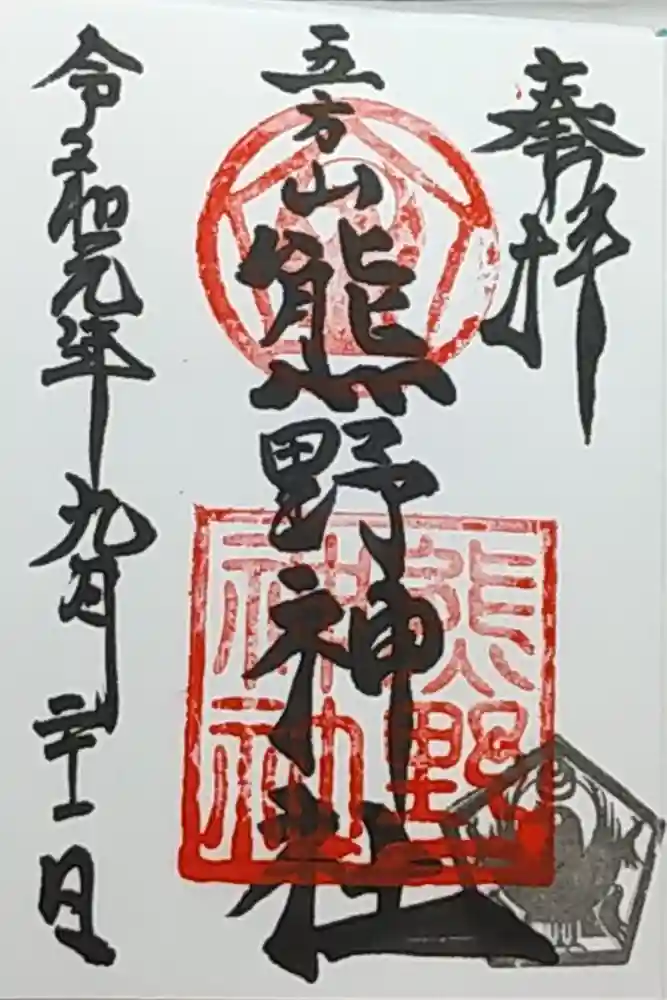 奉拝
五方山熊野神社
熊野
神社
令和元年九月二十一日